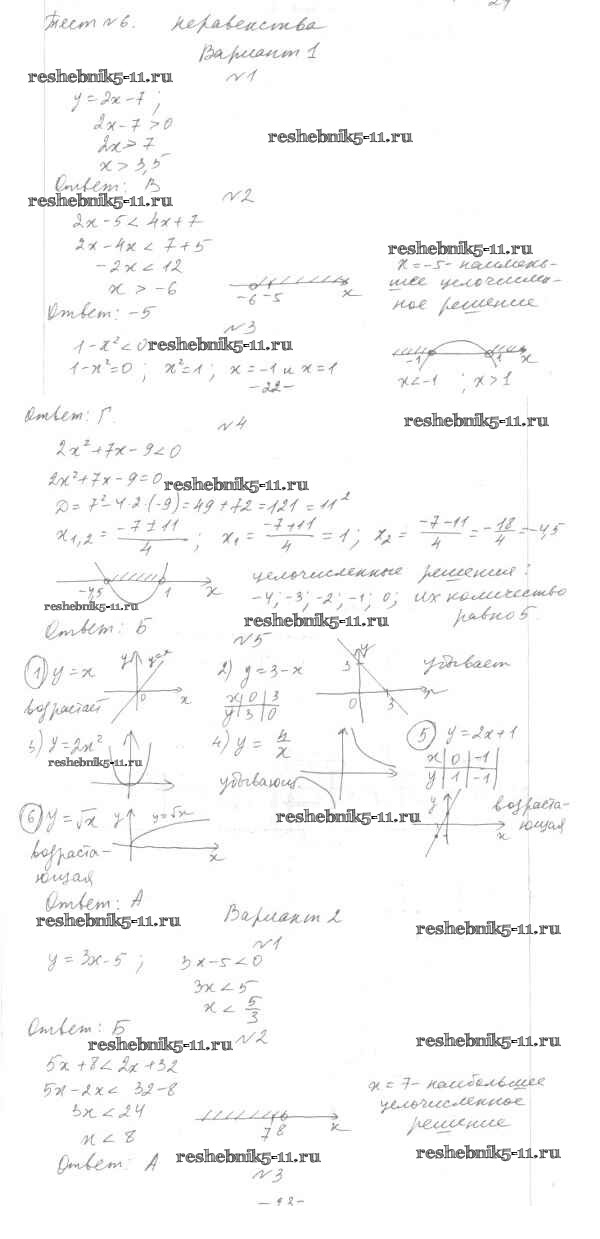 24
Тест №6. неравенства
Вариант 1
reshebnik5-11.ru
№1
y = 2x - 7 ;
2x - 7 > 0
reshebnik5-11.ru
2x > 7
x > 3,5
Ответ: В
reshebnik5-11.ru
№2
2x - 5 < 4x + 7
2x - 4x < 7 + 5
-2x < 12
x > -6
-6 -5 x
reshebnik5-11.ru
x = -5 - наимень-
шее целочислен-
ное решение
Ответ: -5
№3
1 - x² < 0
reshebnik5-11.ru
1 - x² = 0 ; x² = 1 ; x = -1 и x = 1
-1 1 x
x < -1 ; x > 1
-22-
Ответ: Г.
№4
reshebnik5-11.ru
2x² + 7x - 9 < 0
2x² + 7x - 9 = 0
reshebnik5-11.ru
D = 7² - 4·2·(-9) = 49 + 72 = 121 = 11²
x1,2 = (-7 ± 11)/4 ; x1 = (-7+11)/4 = 1 ; x2 = (-7-11)/4 = -18/4 = -4,5
-4,5 1 x
reshebnik5-11.ru
целочисленные решения:
-4; -3; -2; -1; 0; их количество
равно 5.
reshebnik5-11.ru
Ответ: Б
№5
1) y = x
возрастает
y y=x 0 x
2) y = 3 - x
x 0 3
y 3 0
y 3 0 3 x
убывает
3) y = 2x²
reshebnik5-11.ru
4) y = k/x
убывающ.
5) y = 2x + 1
x 0 -1
y 1 -1
y x
возраста-
ющая
6) y = √x
возраста-
ющая
y y=√x x
reshebnik5-11.ru
Ответ: А
reshebnik5-11.ru
Вариант 2
reshebnik5-11.ru
№1
y = 3x - 5 ; 3x - 5 < 0
3x < 5
x < 5/3
Ответ: Б
reshebnik5-11.ru
№2
reshebnik5-11.ru
5x + 8 < 2x + 32
5x - 2x < 32 - 8
3x < 24
x < 8
7 8 x
x = 7 - наибольшее
целочисленное
решение
Ответ: А
reshebnik5-11.ru
reshebnik5-11.ru
№3